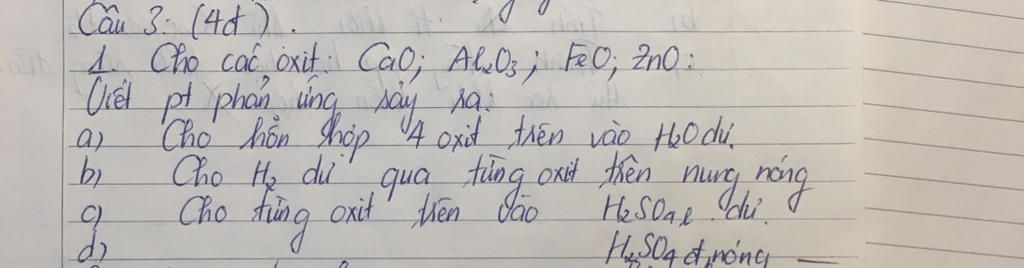 Câu 3: (4đ).
1. Cho các oxit. CaO; Al₂O₃; FeO; ZnO:
Viết pt phản ứng xảy ra:
a) Cho hỗn hợp 4 oxit trên vào H₂O dư.
b) Cho H₂ dư qua từng oxit trên nung nóng
c) Cho từng oxit trên vào H₂SO₄ l dư.
d) H₂SO₄ đ, nóng —